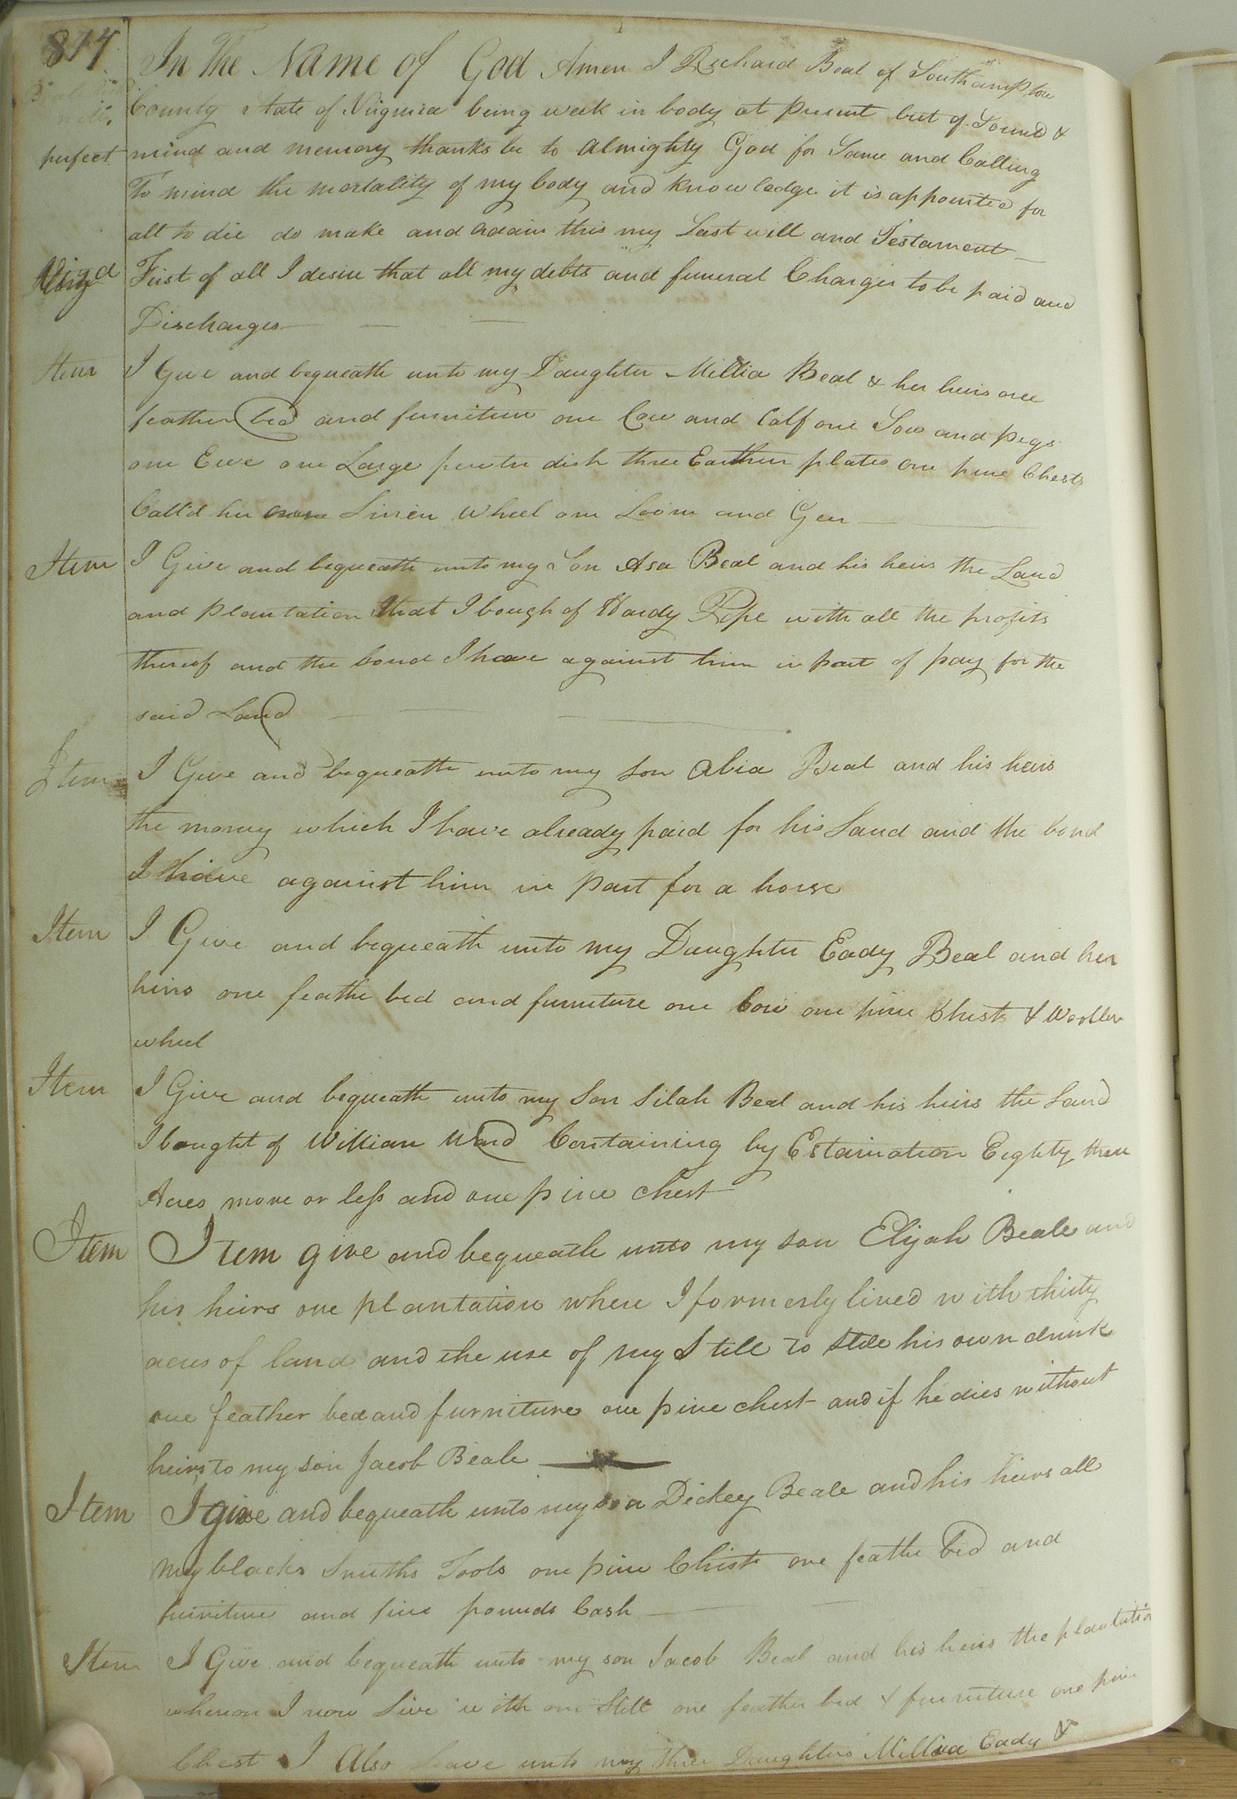 817
In The Name of God Amen I Richard Beal of Southampton
County State of Virginia being weak in body at present but of Sound &
perfect mind and memory thanks be to almighty God for Same and Calling
To mind the mortality of my body and knowledge it is appointed for
all to die do make and ordain this my Last will and Testament
First of all I desire that all my debts and funeral Charges to be paid and
Discharges
Item I Give and bequeath unto my Daughter Millia Beal & her heirs one
feather bed and furniture one Cow and Calf one Sow and pigs
one Ewe one Large pewter dish three Earthen plates one pine Chest
Call'd her own Linen Wheel one Loom and Geer
Item I Give and bequeath unto my Son Asa Beal and his heirs the Land
and plantation that I bough of Hardy Pope with all the profits
thereof and the bond I have against him in part of pay for the
said Land
Item I Give and bequeath unto my son Abia Beal and his heirs
the money which I have already paid for his Land and the bond
I have against him in part for a horse
Item I Give and bequeath unto my Daughter Eady Beal and her
heirs one feathe bed and furniture one Cow one pine Chest & Woollen
wheel
Item I Give and bequeath unto my Son Silah Beal and his heirs the Land
I bought of William Ward Containing by Estaination Eighty three
Acres more or less and one pine chest
Item Item give and bequeath unto my son Elijah Beale and
his heirs one plantation where I formerly lived with thirty
acres of land and the use of my Still to Stile his own drink
one feather bed and furniture one pine chest and if he dies without
heirs to my son Jacob Beale
Item I give and bequeath unto my son Dickey Beale and his heirs all
my blacks Smiths Tools one pine Chist one feathe bed and
furniture and five pounds Cash
Item I Give and bequeath unto my son Jacob Beal and his heirs the plantation
whereon I now Live with one Still one feather bed & furniture one pine
Chest I Also leave unto my three Daughters Millia Eady &